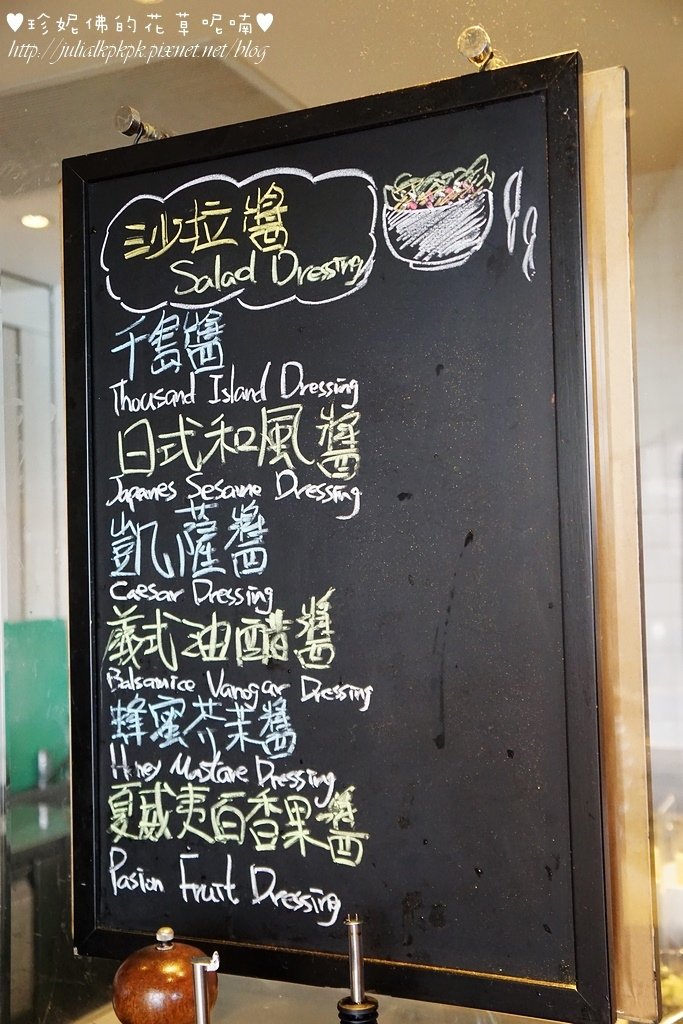 ♥珍妮佛的花草呢喃♥
http://julialkpkpk.pixnet.net/blog
沙拉醬
Salad Dressing
千島醬
Thousand Island Dressing
日式和風醬
Japanes Sesame Dressing
凱薩醬
Caesar Dressing
義式油醋醬
Balsamice Vanegar Dressing
蜂蜜芥茉醬
Honey Mustare Dressing
夏威夷百香果醬
Pasion Fruit Dressing